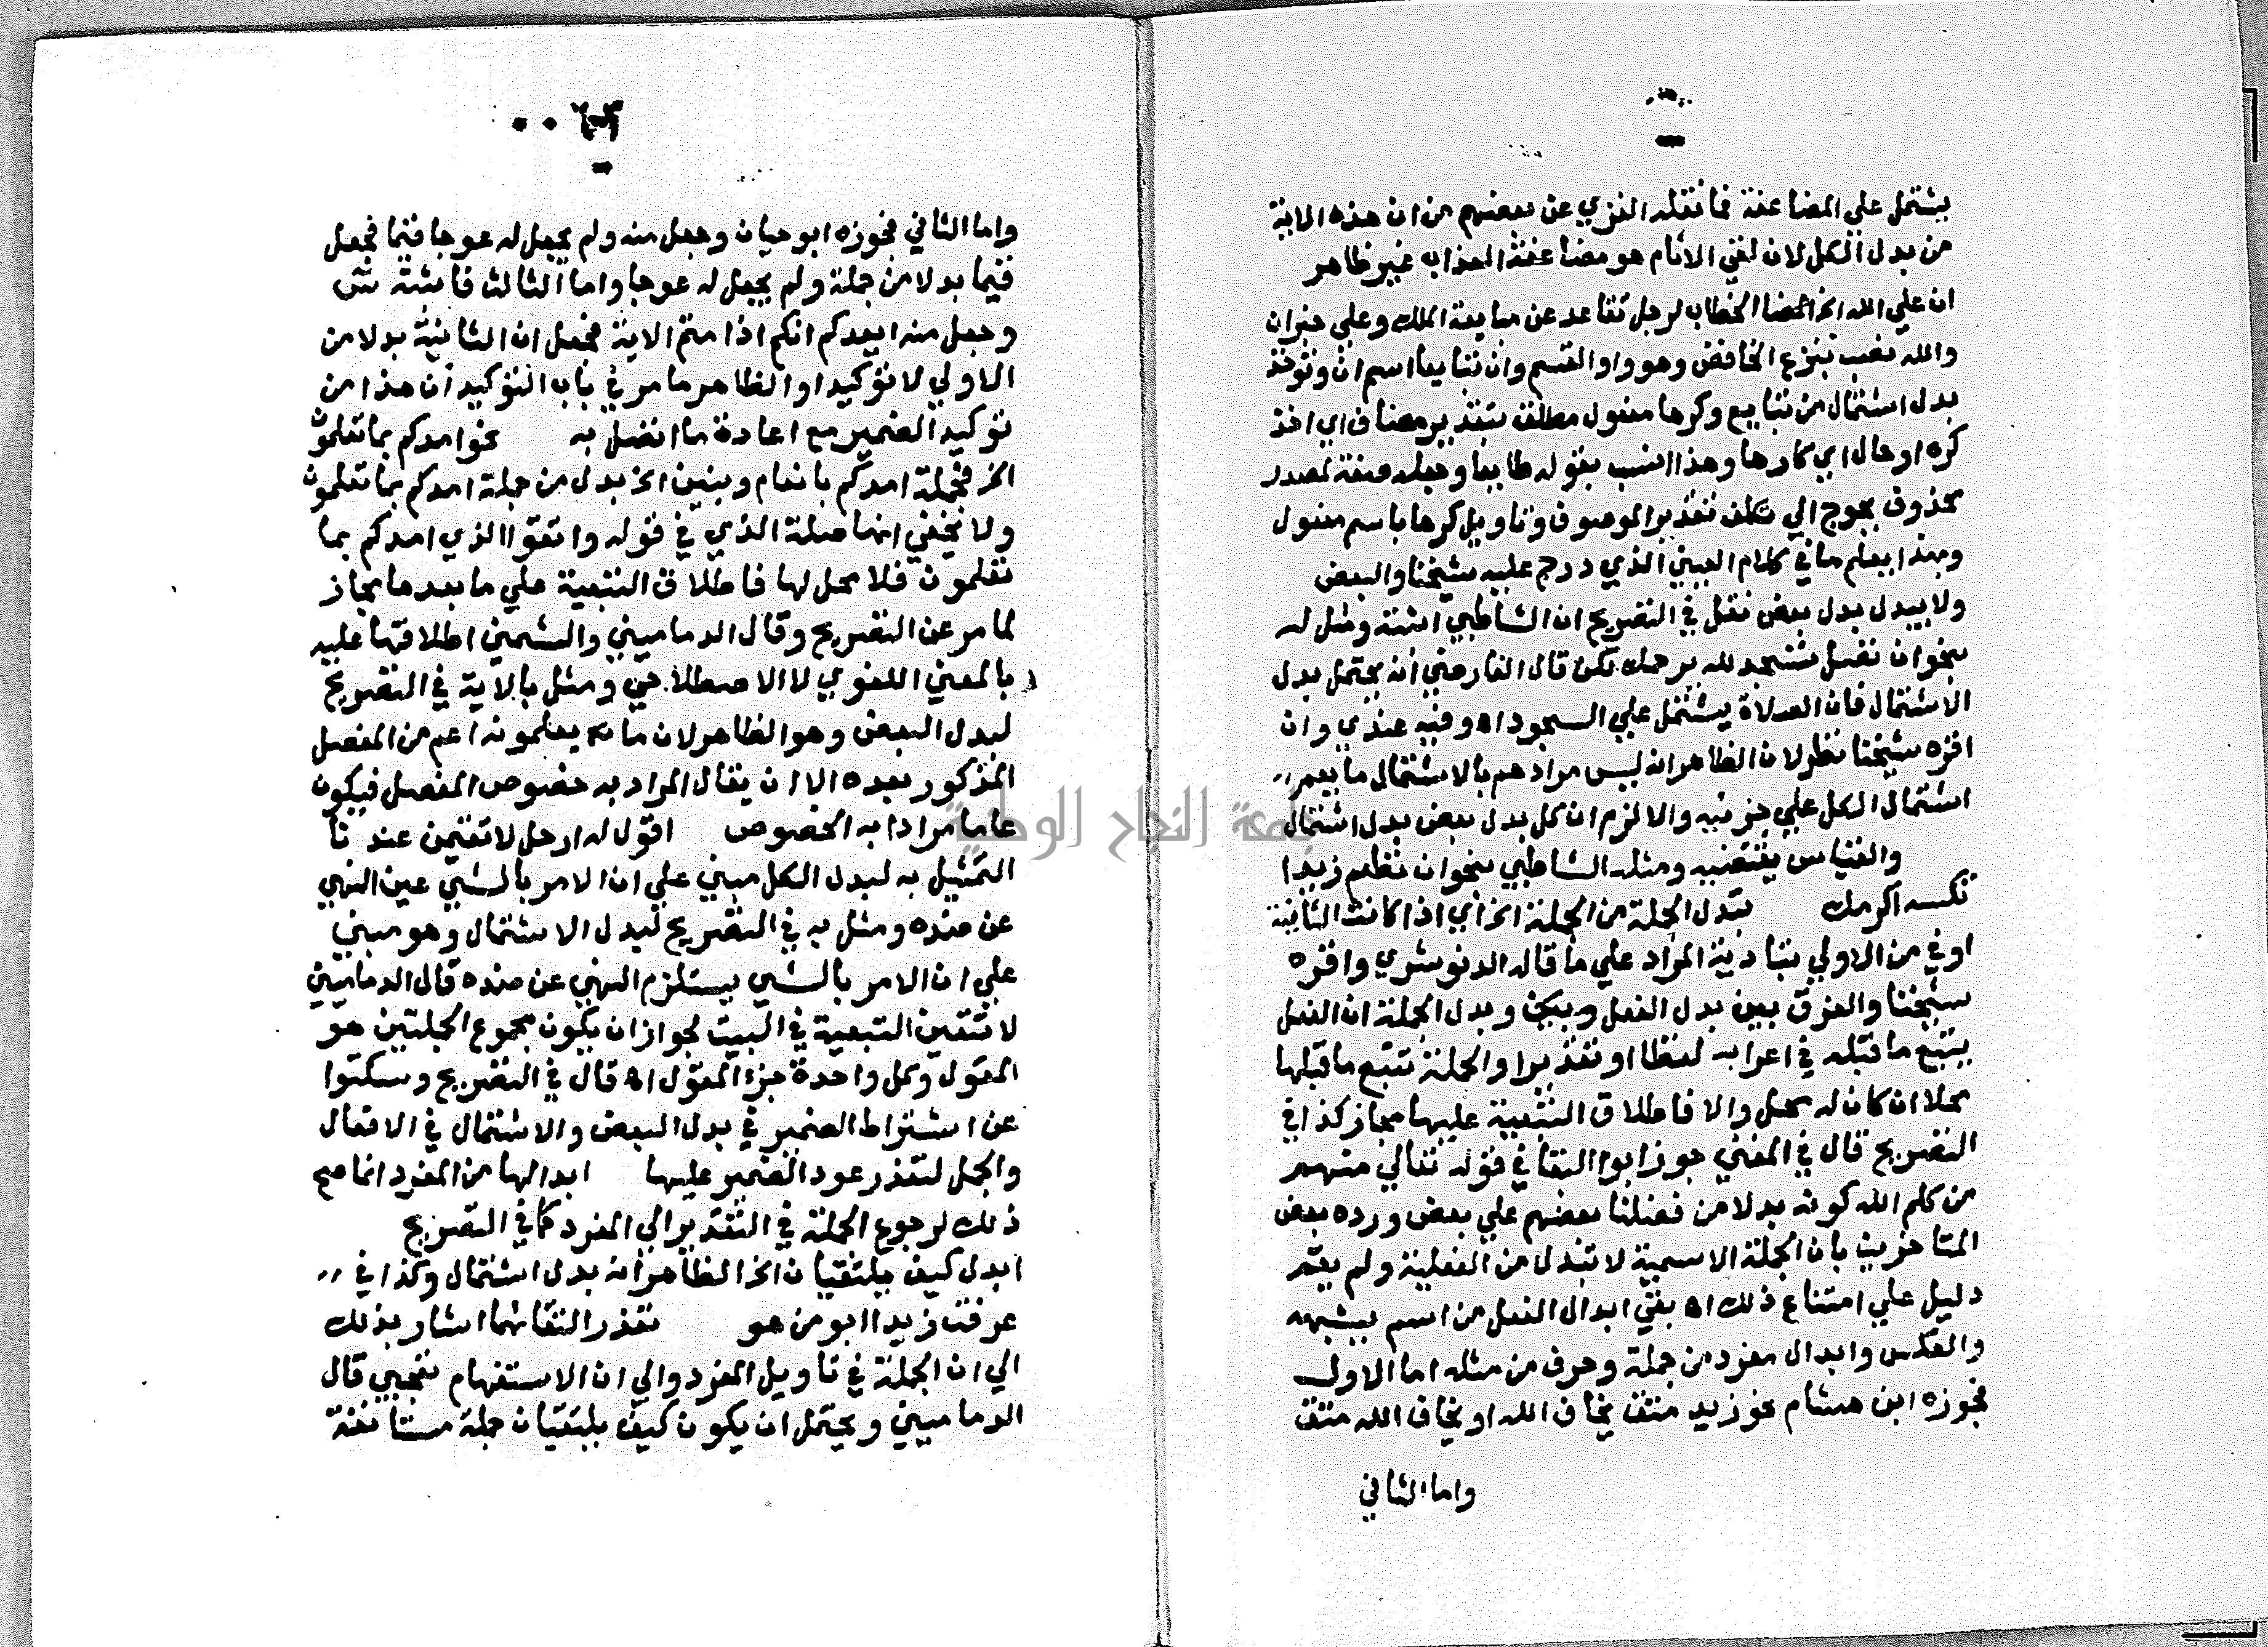 يشتمل علي المضاعفة فما نقله الغزي عن بعضهم من ان هذه الاية
من بدل الكل لان لقي الاثام هو مضاعفة العذاب غير ظاهر
ان علي الله الخ الخطاب لرجل تقاعد عن مبايعة الملك وعلي خبر ان
والله نصب بنزع الخافض وهو واو القسم وان تبايعا اسم ان وتوخذ
بدل اشتمال من تبايع وكرها مفعول مطلق بتقدير مضاف اي اخذ
كره او حال اي كارها وهذا انسب بقوله طايعا وجعله صفة لمصدر
محذوف يحوج الي تكلف تقدير الموصوف وتاويل كرها باسم مفعول
وبهذا يعلم ما في كلام العيني الذي درج عليه شيخنا والبعض
ولا يبدل بدل بعض نقل في التصريح ان الشاطبي اثبته ومثل له
بنحو ان تصل تسجد لله يرحمك لكن قال الفارضي انه يحتمل بدل
الاشتمال فان الصلاة يشتمل علي السجود اه وفيه عندي وان
اقره شيخنا نظر لان الظاهر انه ليس مرادهم بالاشتمال ما يعم
اشتمال الكل علي جزئيه والا لزم ان كل بدل بعض بدل اشتمال
والقياس يقتضيه ومثله الشاطبي بنحو ان تطعم زيدا
تكسه اكرمك تبدل الجملة من الجملة الخ اي اذا كانت الثانية
اوفي من الاولي بتادية المراد علي ما قاله الدنوشري واقره
شيخنا والفرق بين بدل الفعل وبدل الجملة ان الفعل
يتبع ما قبله في اعرابه لفظا او تقديرا والجملة تتبع ما قبلها
محلا ان كان له محل والا فاطلاق التبعية عليها مجاز كذا في
التصريح قال في المغني جوز ابو البقا في قوله تعالي منهم
من كلم الله كونه بدلا من فضلنا بعضهم علي بعض ورده بعض
المتاخرين بان الجملة الاسمية لا تبدل من الفعلية ولم يقم
دليل علي امتناع ذلك اه بقي ابدال الفعل من اسم يشبهه
والعكس وابدال مفرد من جملة وحرف من مثله اما الاول
فجوزه ابن هشام نحو زيد متق يخاف الله او يخاف الله متق
واما الثاني
واما الثاني فجوزه ابو حيان وجعل منه ولم يجعل له عوجا قيما فجعل
قيما بدلا من جملة ولم يجعل له عوجا واما الثالث فاثبته
وجعل منه ايعدكم انكم اذا متم الاية فجعل ان الثانية بدلا من
الاولي لا توكيدا والظاهر ما مر في باب التوكيد ان هذا من
توكيد الضمير مع اعادة ما اتصل به نحو امدكم بما تعلمون
الخ فجملة امدكم بانعام وبنين الخ بدل من جملة امدكم بما تعلمون
ولا يخفي انها صلة الذي في قوله واتقوا الذي امدكم بما
تعلمون فلا محل لها فاطلاق التبعية علي ما بعدها مجاز
لما مر عن التصريح وقال الدماميني والشمني اطلاقها عليه
بالمعني اللغوي لا الاصطلاحي ومثل بالاية في التصريح
لبدل البعض وهو الظاهر لان ما يعلمونه اعم من المفصل
المذكور بعده الا ان يقال المراد به خصوص المفصل فيكون
عاما مرادا به الخصوص اقول له ارحل لا تقيمن عندنا
التمثيل به لبدل الكل مبني علي ان الامر بالشي عين النهي
عن ضده ومثل به في التصريح لبدل الاشتمال وهو مبني
علي ان الامر بالشي يستلزم النهي عن ضده قال الدماميني
لا تتعين التبعية في البيت لجواز ان يكون مجموع الجملتين هو
المقول وكل واحدة جزء المقول اه قال في التصريح وسكتوا
عن اشتراط الضمير في بدل البعض والاشتمال في الافعال
والجمل لتعذر عود الضمير عليها ابدالها من المفرد انما صح
ذلك لرجوع الجملة في التقدير الي المفرد كما في التصريح
ابدل كيف يلتقيان الخ الظاهر انه بدل اشتمال وكذا في
عرفت زيدا ابو من هو تعذر التقائهما اشار بذلك
الي ان الجملة في تاويل المفرد والي ان الاستفهام تعجبي قال
الدماميني ويحتمل ان يكون كيف يلتقيان جملة مستانفة
جامعة النجاح الوطنية